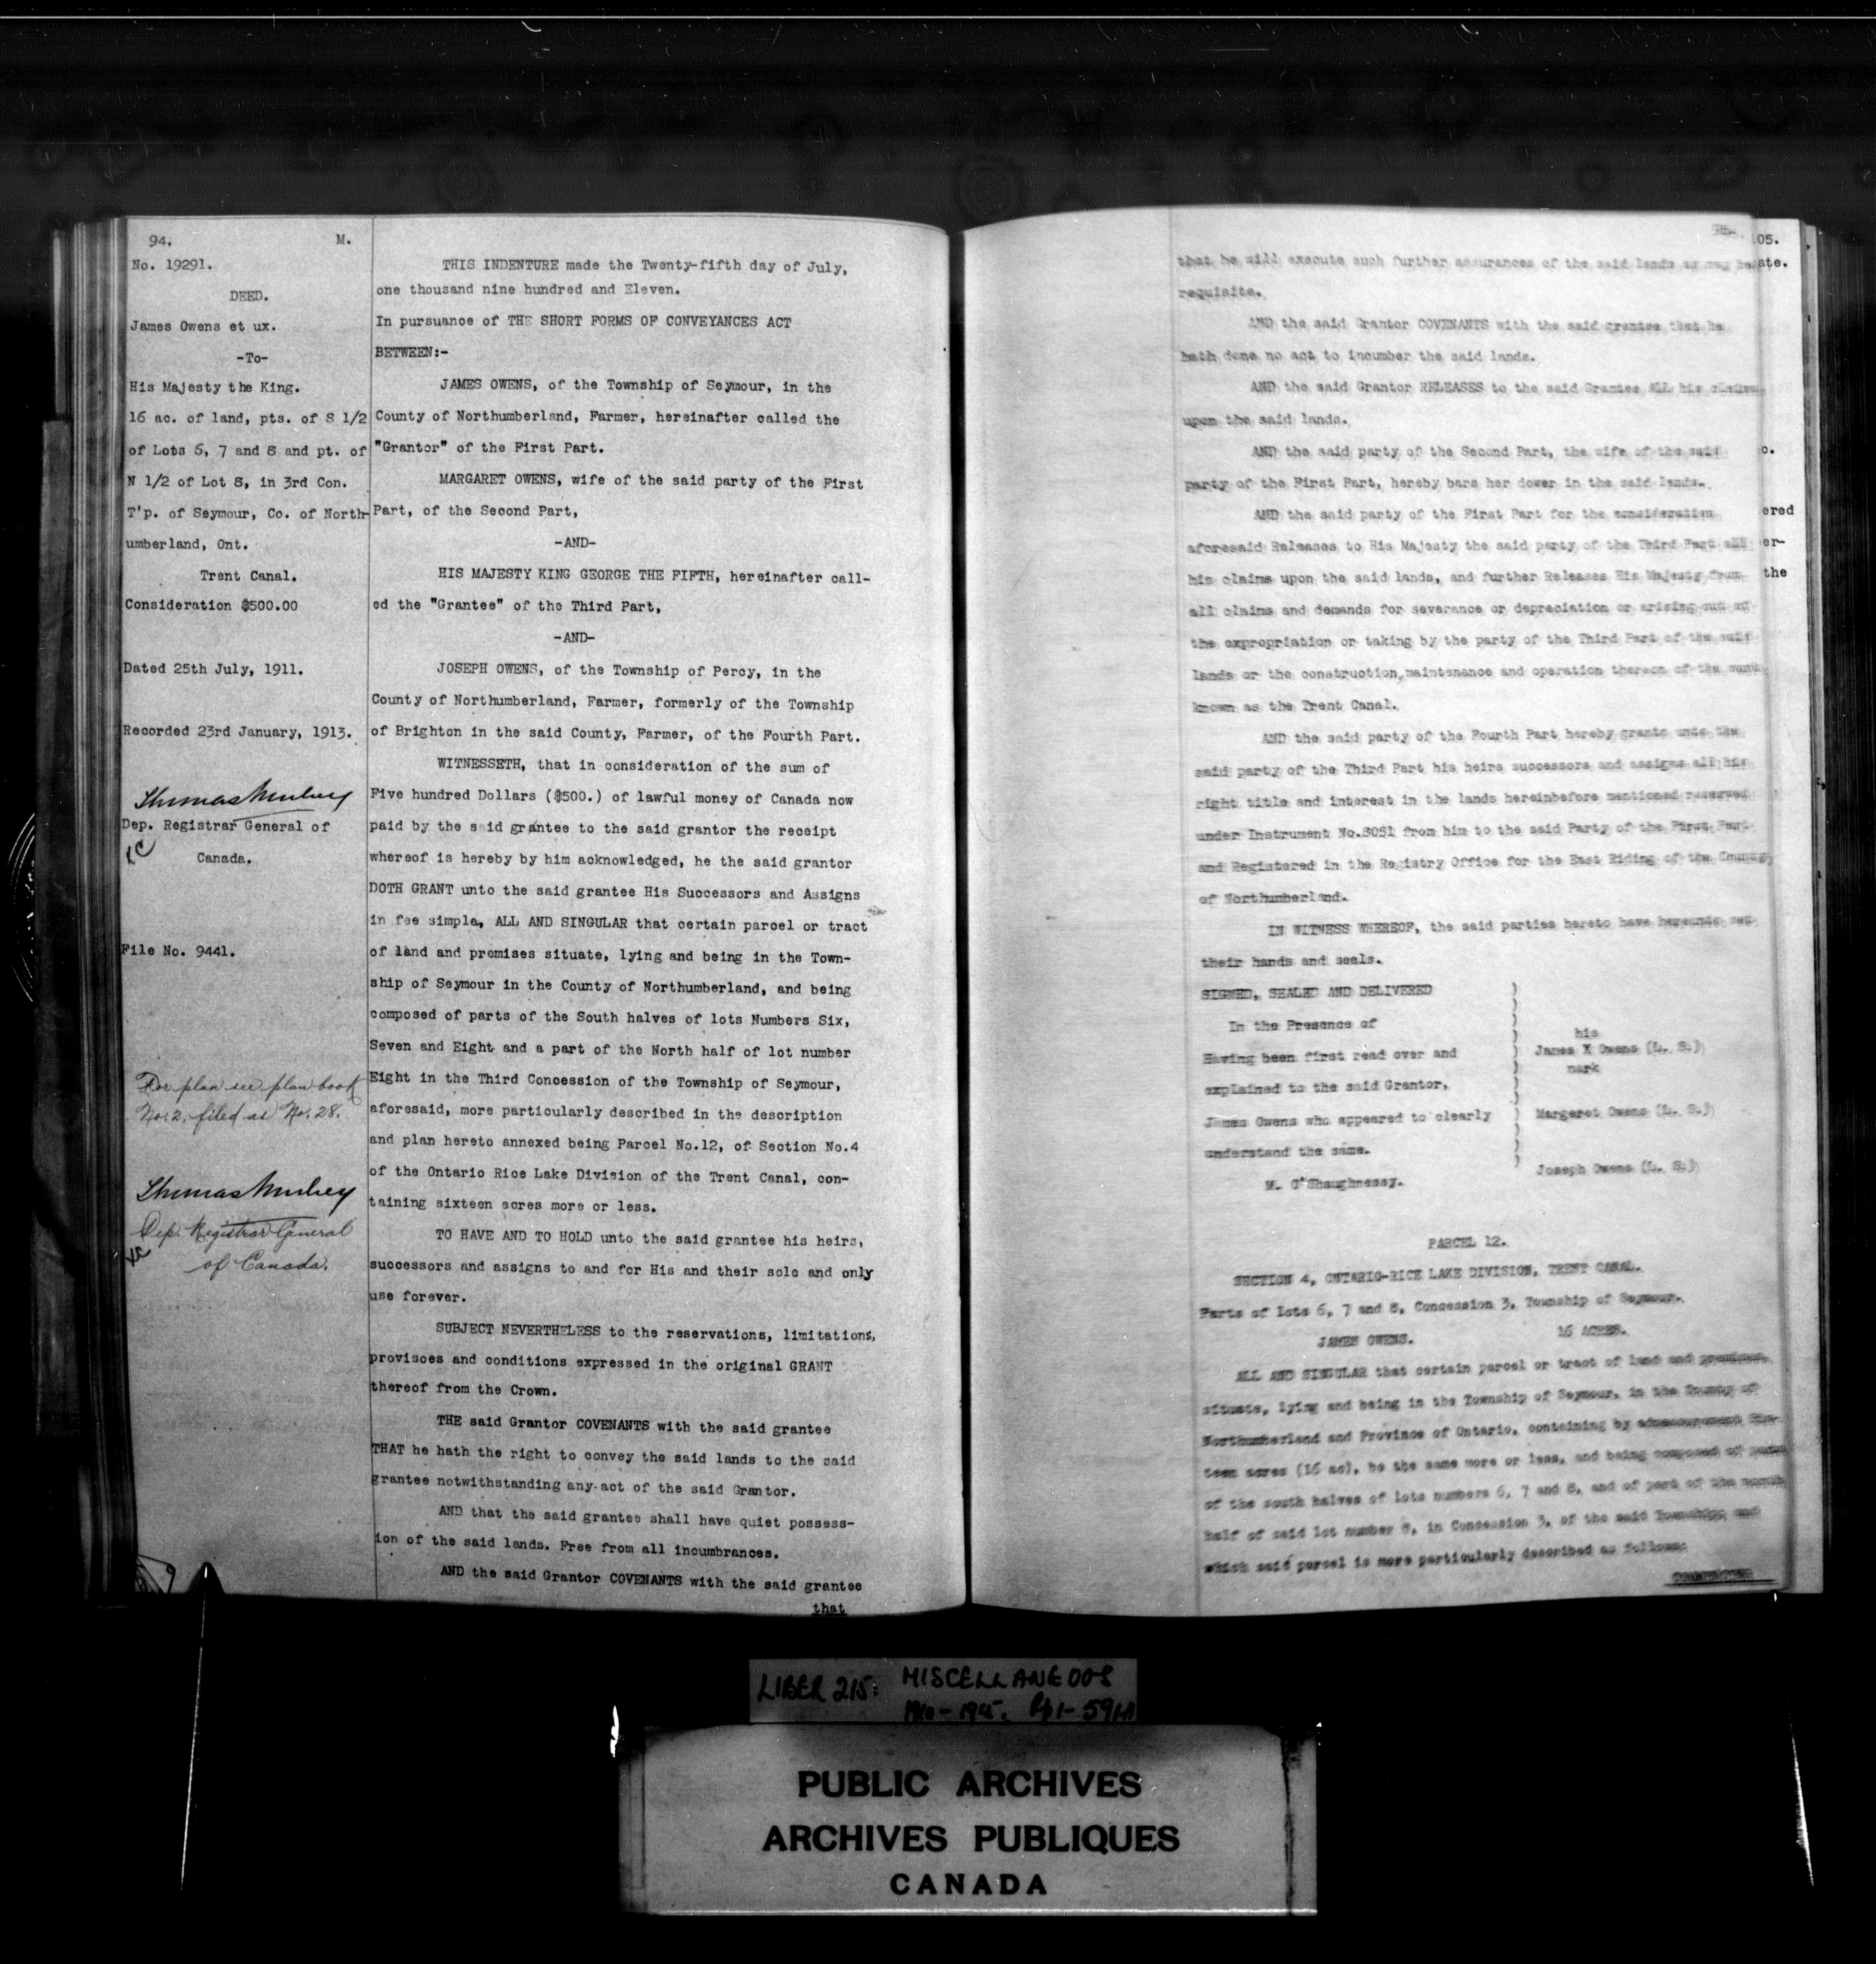 94.
M.
No. 19291.
DEED.
James Owens et ux.
-To-
His Majesty the King.
16 ac. of land, pts. of S 1/2
of Lots 6, 7 and 8 and pt. of
N 1/2 of Lot 8, in 3rd Con.
T'p. of Seymour, Co. of North-
umberland, Ont.
Trent Canal.
Consideration $500.00
Dated 25th July, 1911.
Recorded 23rd January, 1913.
Thomas Mulvey
Dep. Registrar General of
Canada.
File No. 9441.
For plan see plan book
No. 2, filed as No. 28.
Thomas Mulvey
Dep. Registrar General
of Canada.
THIS INDENTURE made the Twenty-fifth day of July,
one thousand nine hundred and Eleven.
In pursuance of THE SHORT FORMS OF CONVEYANCES ACT
BETWEEN:-
JAMES OWENS, of the Township of Seymour, in the
County of Northumberland, Farmer, hereinafter called the
"Grantor" of the First Part.
MARGARET OWENS, wife of the said party of the First
Part, of the Second Part,
-AND-
HIS MAJESTY KING GEORGE THE FIFTH, hereinafter call-
ed the "Grantee" of the Third Part,
-AND-
JOSEPH OWENS, of the Township of Percy, in the
County of Northumberland, Farmer, formerly of the Township
of Brighton in the said County, Farmer, of the Fourth Part.
WITNESSETH, that in consideration of the sum of
Five hundred Dollars ($500.) of lawful money of Canada now
paid by the said grantee to the said grantor the receipt
whereof is hereby by him acknowledged, he the said grantor
DOTH GRANT unto the said grantee His Successors and Assigns
in fee simple, ALL AND SINGULAR that certain parcel or tract
of land and premises situate, lying and being in the Town-
ship of Seymour in the County of Northumberland, and being
composed of parts of the South halves of lots Numbers Six,
Seven and Eight and a part of the North half of lot number
Eight in the Third Concession of the Township of Seymour,
aforesaid, more particularly described in the description
and plan hereto annexed being Parcel No.12, of Section No.4
of the Ontario Rice Lake Division of the Trent Canal, con-
taining sixteen acres more or less.
TO HAVE AND TO HOLD unto the said grantee his heirs,
successors and assigns to and for His and their sole and only
use forever.
SUBJECT NEVERTHELESS to the reservations, limitations,
provisoes and conditions expressed in the original GRANT
thereof from the Crown.
THE said Grantor COVENANTS with the said grantee
THAT he hath the right to convey the said lands to the said
grantee notwithstanding any act of the said Grantor.
AND that the said grantee shall have quiet possess-
ion of the said lands. Free from all incumbrances.
AND the said Grantor COVENANTS with the said grantee
that
95.
that he will execute such further assurances of the said lands as may be
requisite.
AND the said Grantor COVENANTS with the said grantee that he
hath done no act to incumber the said lands.
AND the said Grantor RELEASES to the said Grantee ALL his claims
upon the said lands.
AND the said party of the Second Part, the wife of the said
party of the First Part, hereby bars her dower in the said lands.
AND the said party of the First Part for the consideration
aforesaid Releases to His Majesty the said party of the Third Part all
his claims upon the said lands, and further Releases His Majesty from
all claims and demands for severance or depreciation or arising out of
the expropriation or taking by the party of the Third Part of the said
lands or the construction, maintenance and operation thereon of the works
known as the Trent Canal.
AND the said party of the Fourth Part hereby grants unto the
said party of the Third Part his heirs successors and assigns all his
right title and interest in the lands hereinbefore mentioned reserved
under Instrument No.8051 from him to the said Party of the First Part
and Registered in the Registry Office for the East Riding of the County
of Northumberland.
IN WITNESS WHEREOF, the said parties hereto have hereunto set
their hands and seals.
SIGNED, SEALED AND DELIVERED
In the Presence of
Having been first read over and
explained to the said Grantor,
James Owens who appeared to clearly
understand the same.
M. O'Shaughnessy.
his
James X Owens (L. S.)
mark
Margaret Owens (L. S.)
Joseph Owens (L. S.)
PARCEL 12.
SECTION 4, ONTARIO-RICE LAKE DIVISION, TRENT CANAL.
Parts of lots 6, 7 and 8, Concession 3, Township of Seymour.
JAMES OWENS. 16 ACRES.
ALL AND SINGULAR that certain parcel or tract of land and premises
situate, lying and being in the Township of Seymour, in the County of
Northumberland and Province of Ontario, containing by admeasurement Six-
teen acres (16 ac), be the same more or less, and being composed of parts
of the south halves of lots numbers 6, 7 and 8, and of part of the north
half of said lot number 8, in Concession 3, of the said Township; and
which said parcel is more particularly described as follows:
105.
ate.
c.
ered
er-
the
LIBER 215: MISCELLANEOUS
PUBLIC ARCHIVES
ARCHIVES PUBLIQUES
CANADA